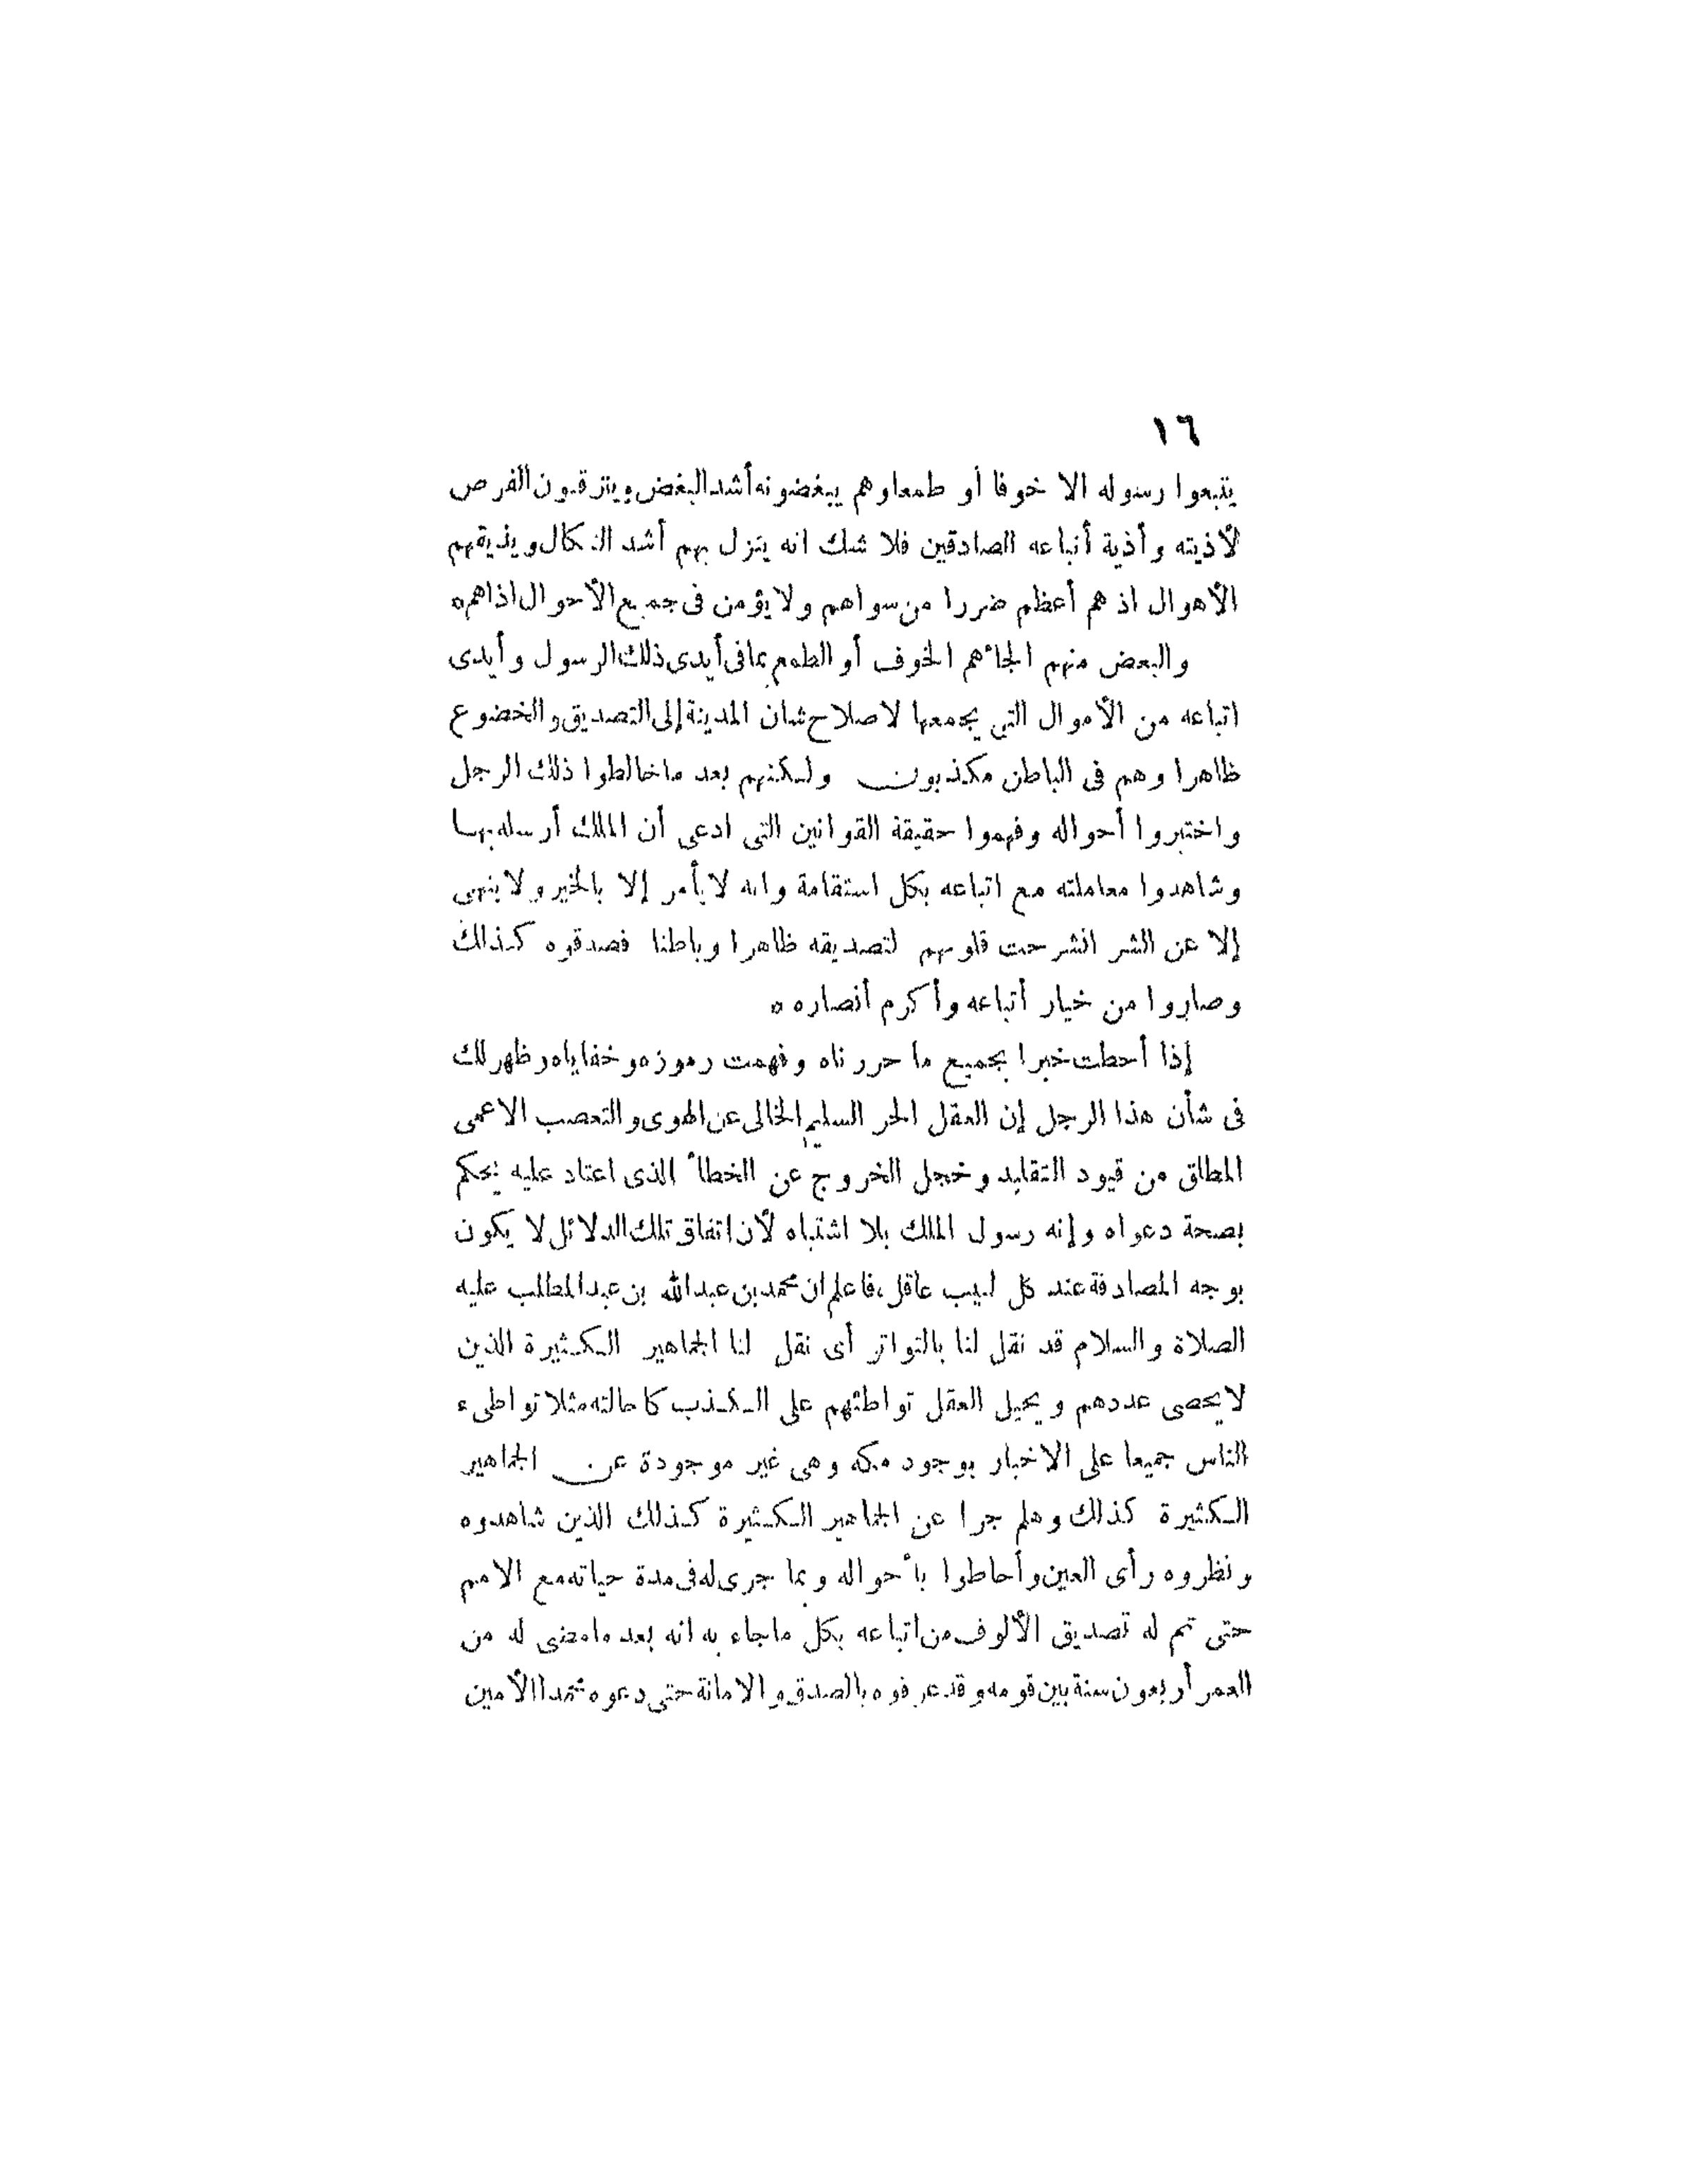 ١٦
يتبعوا رسوله الا خوفا أو طمعا وهم يبغضونه أشد البغض ويترقبون الفرص
لأذيته وأذية أتباعه الصادقين فلا شك انه ينزل بهم أشد النكال ويذيقهم
الأهوال اذ هم أعظم ضررا من سواهم ولا يؤمن فى جميع الأحوال اذاهم ه
والبعض منهم الجأهم الخوف أو الطمع بما فى أيدى ذلك الرسول وأيدى
اتباعه من الأموال التى يجمعها لاصلاح شان المدينة إلى التصديق والخضوع
ظاهرا وهم فى الباطن مكذبون ولكنهم بعد ما خالطوا ذلك الرجل
واختبروا أحواله وفهموا حقيقة القوانين التى ادعى أن الملك أرسله بها
وشاهدوا معاملته مع اتباعه بكل استقامة وانه لا يأمر إلا بالخير ولا ينهى
إلا عن الشر انشرحت قلوبهم لتصديقه ظاهرا وباطنا فصدقوه كذلك
وصاروا من خيار أتباعه وأكرم أنصاره ه
إذا أحطت خبرا بجميع ما حررناه وفهمت رموزه وخفاياه وظهر لك
فى شأن هذا الرجل إن العقل الحر السليم الخالى عن الهوى والتعصب الاعمى
المطلق من قيود التقليد وخجل الخروج عن الخطأ الذى اعتاد عليه يحكم
بصحة دعواه وإنه رسول الملك بلا اشتباه لأن اتفاق تلك الدلائل لا يكون
بوجه المصادفة عند كل لبيب عاقل، فاعلم ان محمد بن عبد الله بن عبد المطلب عليه
الصلاة والسلام قد نقل لنا بالتواتر أى نقل لنا الجماهير الكثيرة الذين
لا يحصى عددهم ويحيل العقل تواطئهم على الكذب كاحالته مثلا تواطىء
الناس جميعا على الاخبار بوجود مكه وهى غير موجودة عن الجماهير
الكثيرة كذلك وهلم جرا عن الجماهير الكثيرة كذلك الذين شاهدوه
ونظروه رأى العين وأحاطوا بأحواله وبما جرى له فى مدة حياته مع الامم
حتى تم له تصديق الألوف من اتباعه بكل ما جاء به انه بعد ما مضى له من
العمر أربعون سنة بين قومه وقد عرفوه بالصدق والامانة حتى دعوه محمدا الأمين